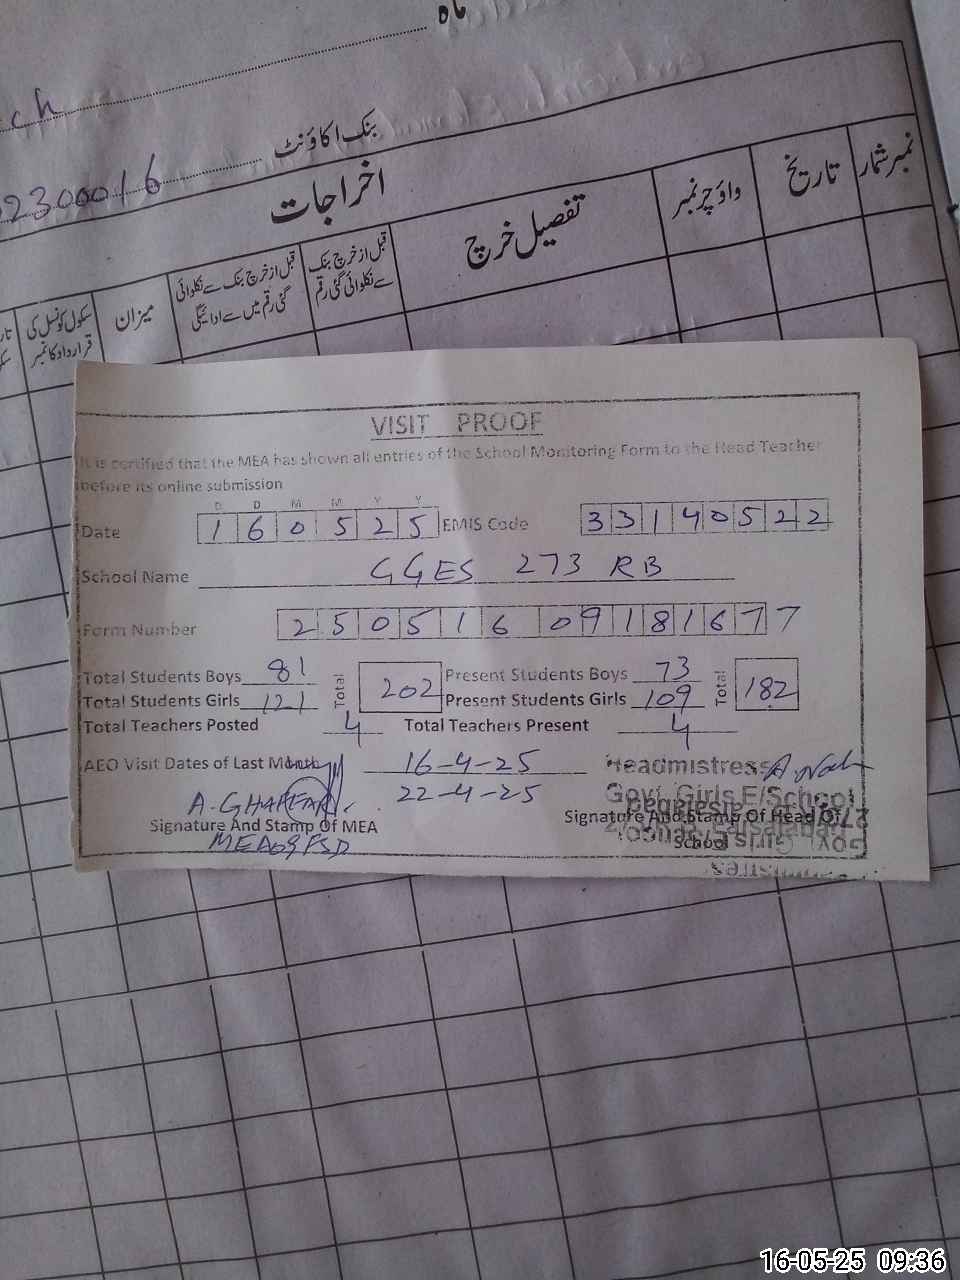 ماہ
ch
بنک اکاؤنٹ
23000/6
اخراجات
نمبر شمار
تاریخ
واؤچر نمبر
تفصیل خرچ
قبل از خرچ بنک سے نکلوائی گئی رقم
قبل از خرچ بنک سے نکلوائی گئی رقم میں سے ادائیگی
میزان
سکول کونسل کی قرارداد کا نمبر
VISIT PROOF
It is certified that the MEA has shown all entries of the School Monitoring Form to the Head Teacher
before its online submission
D D M M Y Y
Date 1 6 0 5 2 5 EMIS Code 3 3 1 4 0 5 2 2
School Name GGES 273 RB
Form Number 2 5 0 5 1 6 0 9 1 8 1 6 7 7
Total Students Boys 81 Total 202 Present Students Boys 73 Total 182
Total Students Girls 121 Present Students Girls 109
Total Teachers Posted 4 Total Teachers Present 4
AEO Visit Dates of Last Month 16-4-25 Headmistress
22-4-25 Govt. Girls E/School
A. GHAFFAR
Signature And Stamp Of MEA Signature And Stamp Of Head Of
School
MEA09 FSD
16-05-25 09:36